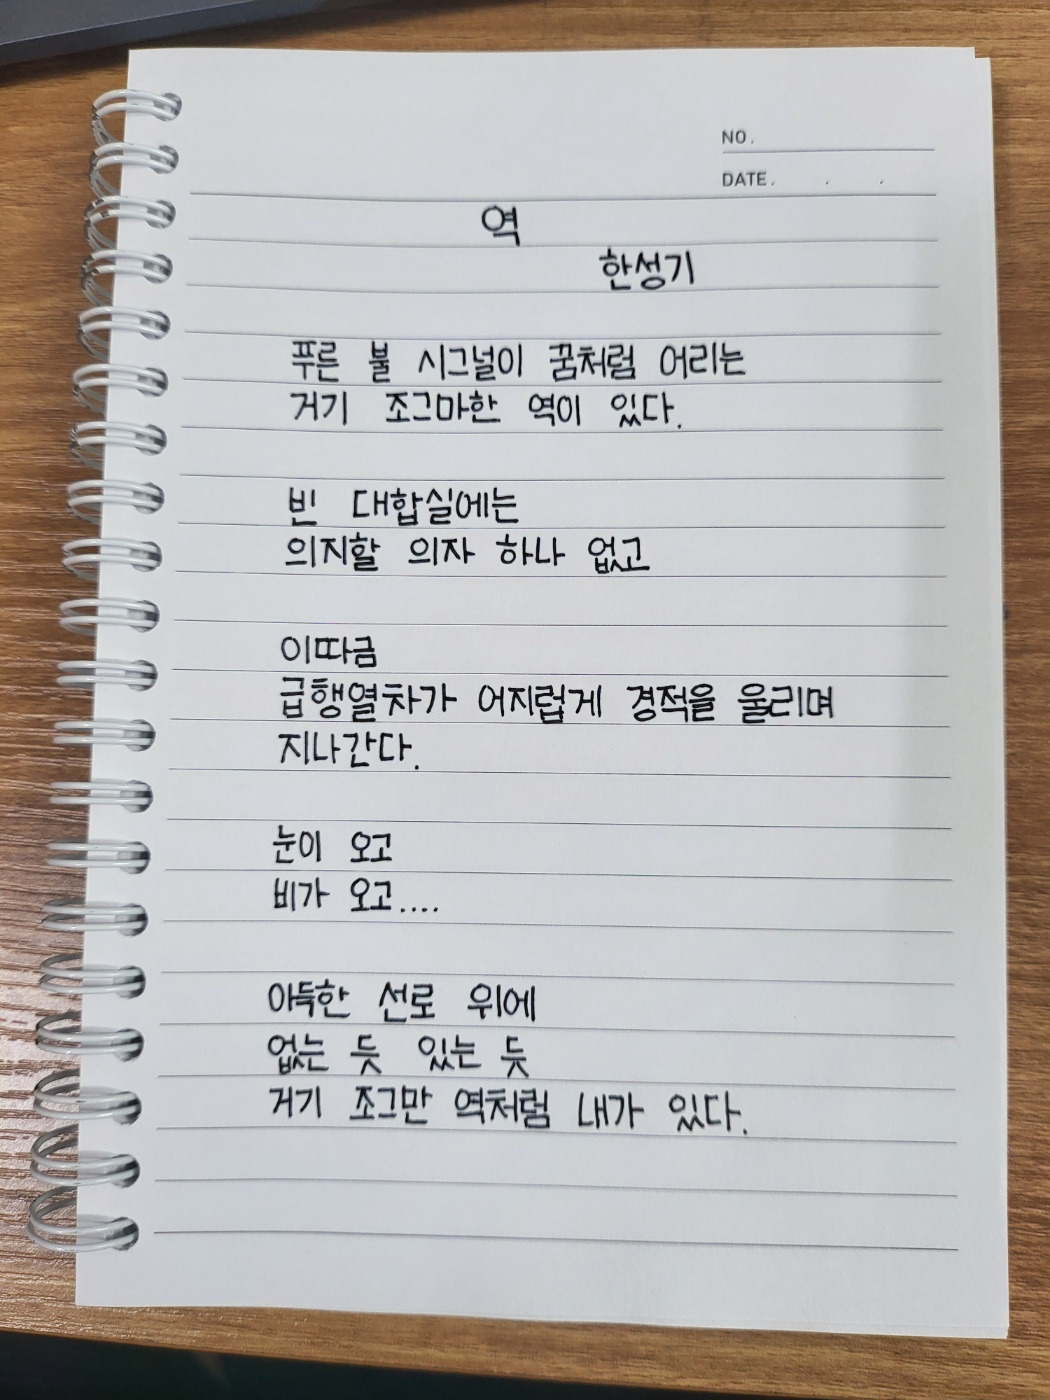 NO.
DATE. . .
역
한성기
푸른 불 시그널이 꿈처럼 어리는
거기 조그마한 역이 있다.
빈 대합실에는
의지할 의자 하나 없고
이따금
급행열차가 어지럽게 경적을 울리며
지나간다.
눈이 오고
비가 오고....
아득한 선로 위에
없는 듯 있는 듯
거기 조그만 역처럼 내가 있다.